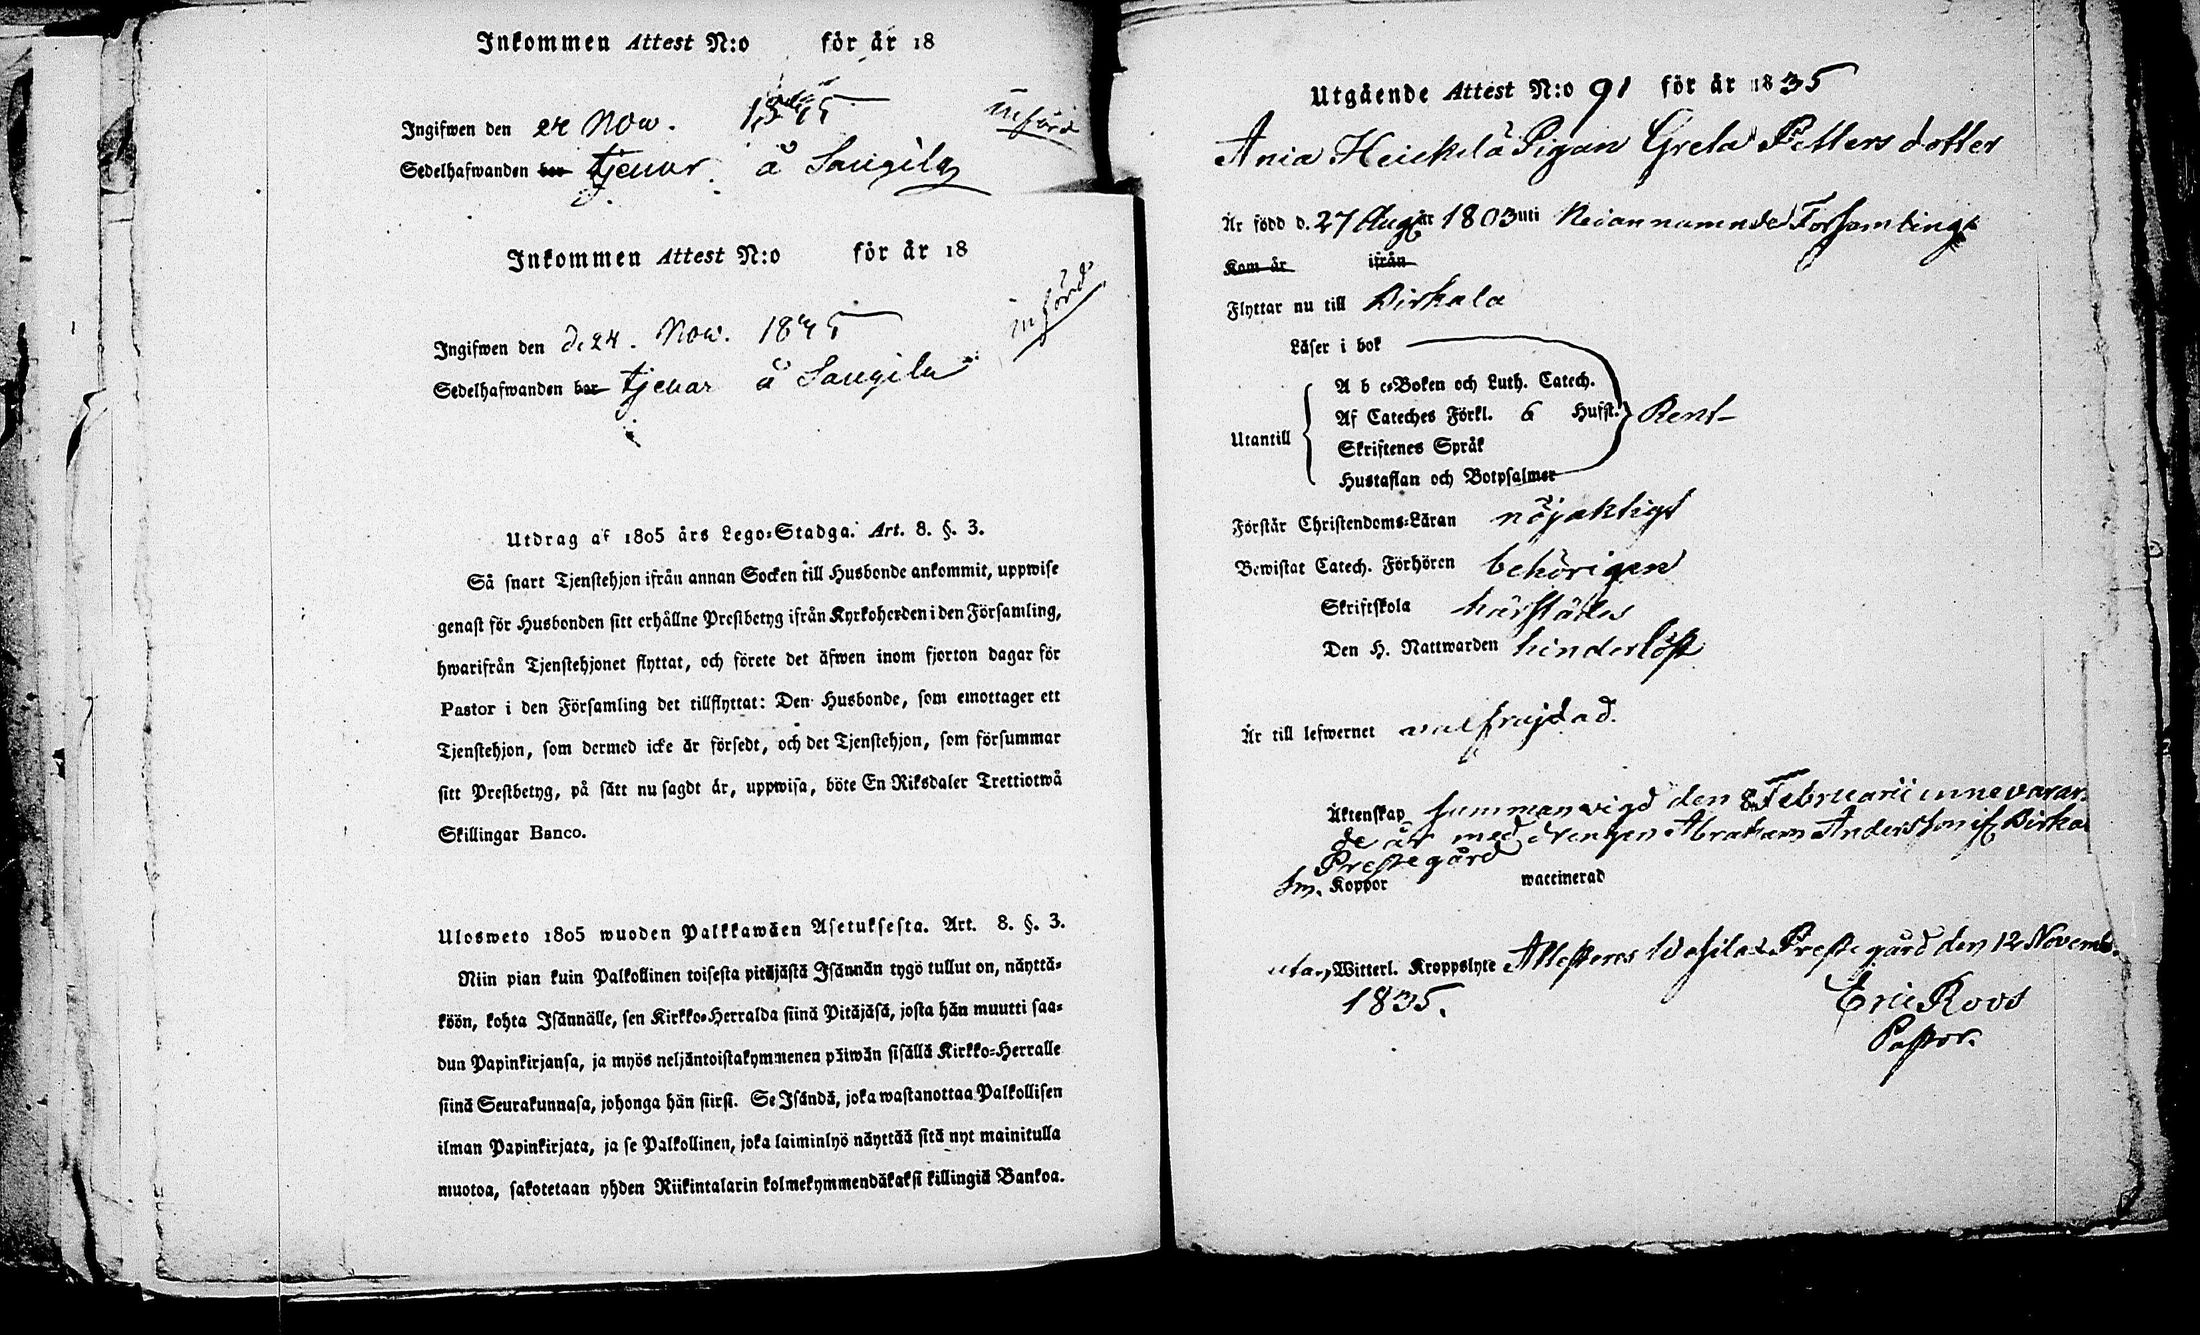 Inkommen Attest N:o för år 18
Ingifwen den 24 Now. 1835
införd
Sedelhafwanden bor tjenar å Saugila
Inkommen Attest N:o för år 18
införd
Ingifwen den d. 24. Now. 1835
Sedelhafwanden bor tjenar å Saugila
Utdrag af 1805 års Lego-Stadga. Art. 8. §. 3.
Så snart Tjenstehjon ifrån annan Socken till Husbonde ankommit, uppwise
genast för Husbonden sitt erhållne Prestbetyg ifrån Kyrkoherden i den Församling,
hwarifrån Tjenstehjonet flyttat, och förete det äfwen inom fjorton dagar för
Pastor i den Församling det tillflyttat: Den Husbonde, som emottager ett
Tjenstehjon, som dermed icke är försedt, och det Tjenstehjon, som försummar
sitt Prestbetyg, på sätt nu sagdt är, uppwisa, böte En Riksdaler Trettiotwå
Skillingar Banco.
Ulosweto 1805 wuoden Palkkawäen Asetuksesta. Art. 8. §. 3.
Niin pian kuin Palkollinen toisesta pitäjästä Isännän tygö tullut on, näyttä-
köön, kohta Isännälle, sen Kirkko-Herralda siinä Pitäjäsä, josta hän muutti saa-
dun Papinkirjansa, ja myös neljäntoistakymmenen päiwän sisällä Kirkko-Herralle
siinä Seurakunnasa, johonga hän siirsi. Se Isändä, joka wastanottaa Palkollisen
ilman Papinkirjata, ja se Palkollinen, joka laiminlyö näyttää sitä nyt mainitulla
muotoa, sakotetaan yhden Riikintalarin kolmekymmendäkaksi killingiä Bankoa.
Utgående Attest N:o 91 för år 1835
Ania Heickelä Pigan Greta Petters dotter
Är född d. 27 Aug. år 1803 uti Neiannamnde Församling
Kom år ifrån
Flyttar nu till Birkala
Läser i bok
A b c-Boken och Luth. Catech.
Af Cateches Förkl. 6 Hufst. Rent
Utantill
Skriftenes Språk
Hustaflan och Botpsalmer
Förstår Christendoms-Läran nöjaktigt
Bewistat Catech. Förhören behörigen
Skriftskola härstädes
Den H. Nattwarden hinderlöst
Är till lefwernet välfrajdad.
Äktenskap sammanvigd den 8 Februarii innevaran-
de år med drengen Abraham Andersson if. Birkala
Prestegård
Sm. Koppor waccinerad
utan Witterl. Kroppslyte Attesteras Wesilax Prestegård den 12 Novemb.
1835.
Eric Roos
Pastor.